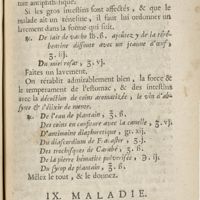 tum antiputrifique.
Si les gros intestins sont affectés, & que le
malade ait un ténesme, il faut lui ordonner un
lavement dans la forme qui suit.
℞. De lait de vache ℔. ß. ajoûtez y de la téré-
benthine dissoute avec un jeaune d'œuf,
ʒ. iij.
Du miel rosat, ʒ. vj.
Faites un lavement.
On rétablit admirablement bien, la force &
le temperament de l'estomac, & des intestins
avec la décoction de coins aromatizée, le vin d'ab-
synte & l'élixir de menthe.
℞. De l'eau de plantain, ℥. ß.
Des coins en confiture avec la canelle, ʒ. vj.
D'antimoine diaphoretique, gr. xij.
Du diascordium de Fracastor, ʒ. ß.
Des trochisques de Carabé, ʒ. ß.
De la pierre hématite pulverisée, ℈. ij.
Du syrop de plantain, ℥. ß.
Mêlez le tout, & le donnez.
IX. MALADIE.